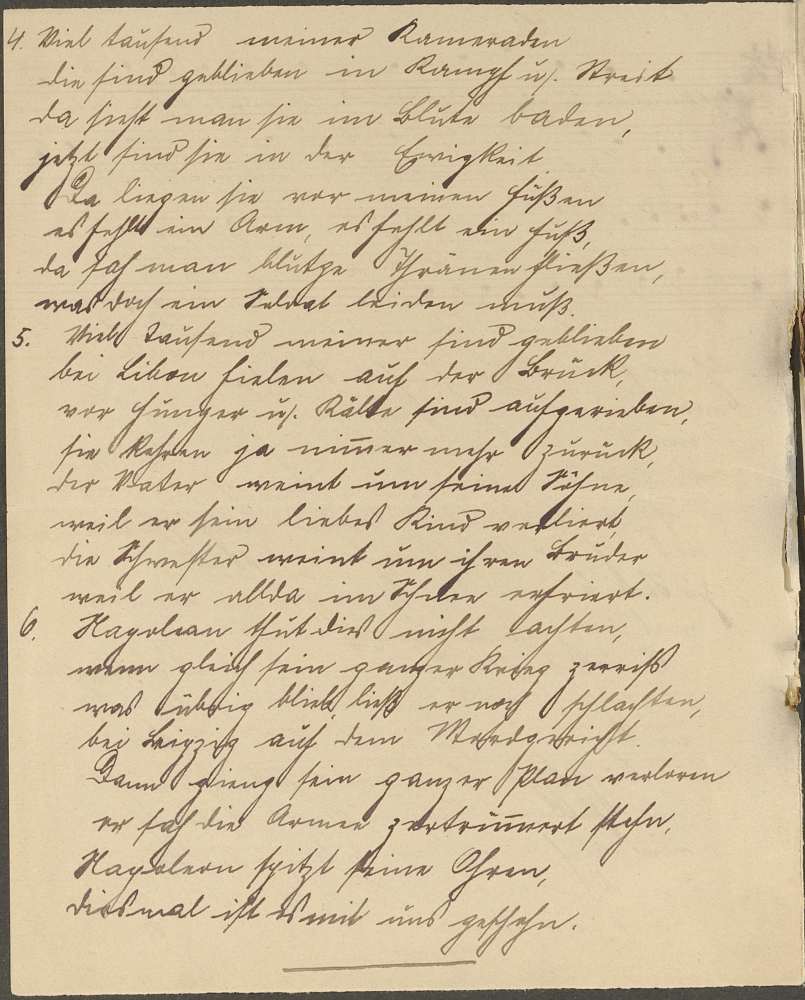 4. Viel tausend meiner Kameraden
die sind geblieben in Kampf u. Streit
da sieht man sie im Blute baden,
jetzt sind sie in der Ewigkeit
Da liegen sie vor meinen Füßen
es fehlt ein Arm, es fehlt ein Fuß,
da sah man blutge Thränen fließen,
was doch ein Soldat leiden muß.
5. Viel tausend meiner sind geblieben
bei Libon fielen auf der Brück,
vor Hunger u. Kälte sind aufgerieben,
sie kehren ja nim̄er mehr zurück,
der Vater weint um seine Söhne,
weil er sein liebes Kind verliert,
die Schwester weint um ihren Bruder
weil er allda im Schnee erfriert.
6. Napolean thut dies nicht achten,
wenn gleich sein ganzer Krieg zerriß
was übrig blieb, ließ er noch schlachten,
bei Leipzig auf dem Mordgericht.
Dann gieng sein ganzer Plan verloren
er sah die Armee zertrüm̄ert stehn,
Napoleon spitzt seine Ohren,
diesmal ist es mit uns geschehn.